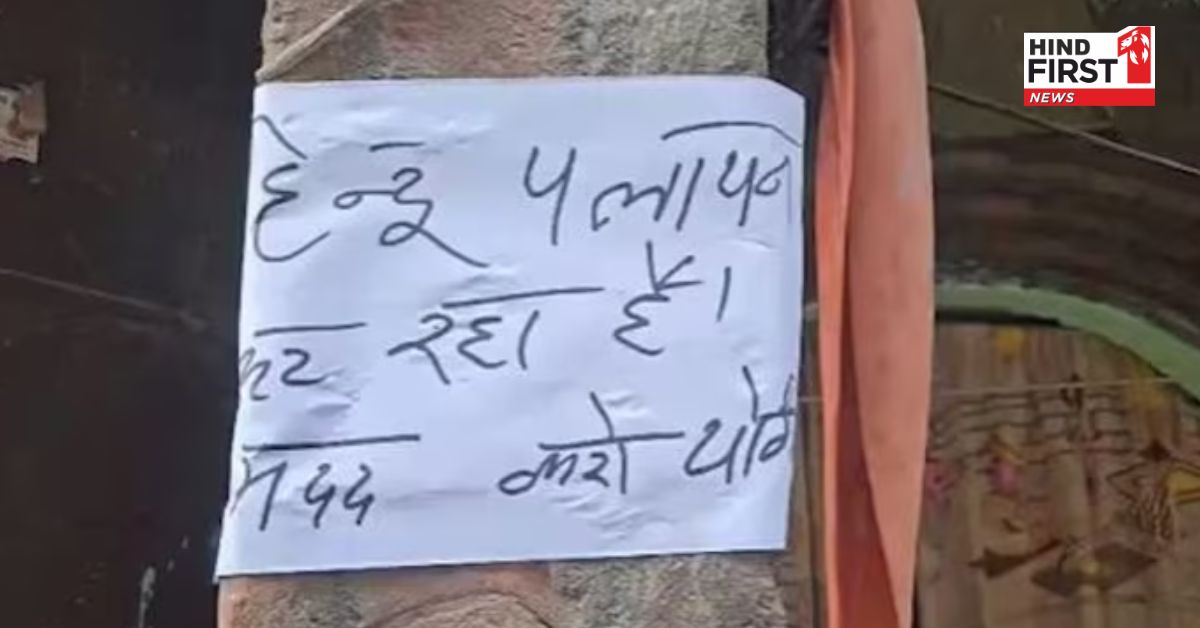 हिन्दू पलायन
कर रहा है।
मदद करो योगी
HIND
FIRST 1
NEWS